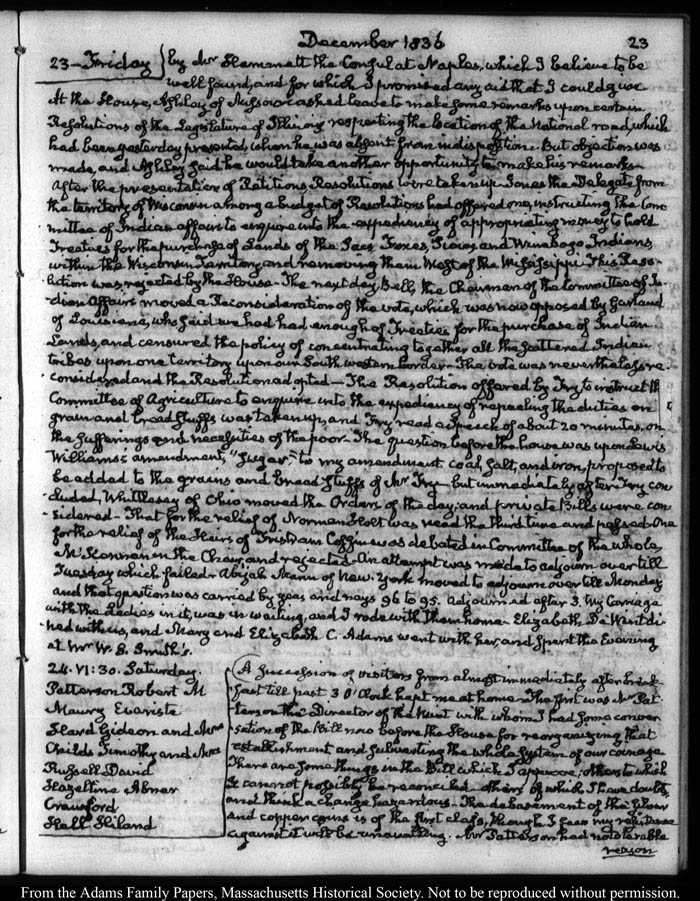 December 1836
23
23—Friday
by Mr Hammett the Consul at Naples, which I believe to be
well found, and for which I promised any aid that I could give
At the House, Ashley of Missouri asked leave to make some remarks upon certain
Resolutions of the Legislature of Illinois respecting the location of the National road, which
had been yesterday presented, when he was absent from indisposition. But objection was
made, and Ashley said he would take another opportunity to make his remarks
After the presentation of Petitions, Resolutions were taken up. Jones the Delegate from
the territory of Wisconsin among a budget of Resolutions had offered one, instructing the Com
mittee of Indian affairs to enquire into the expediency of appropriating money to hold
Treaties for the purchase of Lands of the Sacs, Foxes, Sioux and Winebago Indians,
within the Wisconsin Territory, and removing them West of the Mississippi. This Reso-
lution was rejected by the House—The next day Bell, the Chairman of the Committee of In-
dian Affairs moved a Reconsideration of the vote, which was now opposed by Garland
of Louisiana, who said we had had enough of Treaties for the purchase of Indian
Lands, and censured the policy of concentrating together all the scattered Indian
tribes upon one territory upon our South western border—The vote was nevertheless re-
considered and the Resolution adopted—The Resolution offered by Fry to instruct the
Committee of Agriculture to enquire into the expediency of repealing the duties on
grain and bread stuffs was taken up, and Fry read a speech of about 20 minutes, on
the sufferings and necessities of the poor—The question before the house was upon Lewis
Williams's amendment, "Sugar," to my amendment. Coal, Salt, and iron, proposed to
be added to the grains and bread stuffs of Mr Fry—but immediately after Fry con
cluded, Whittlesey of Ohio moved the Orders of the day; and private Bills were con
sidered—That for the relief of Norman Holt was read the third time and passed. One
for the relief of the Heirs of Tristram Coffin was debated in Committee of the whole,
McKennan in the Chair, and rejected. An attempt was made to adjourn over till
Tuesday which failed. Abijah Mann of New York moved to adjourn over till Monday
and that question was carried by yeas and nays 96 to 95. Adjourned after 3. My Carriage
with the Ladies in it, was in waiting, and I rode with them home. Elizabeth De Wint di-
ned with us, and Mary and Elizabeth C. Adams went with her, and spent the Evening
at Mr W. S. Smith's.
24. VI:30. Saturday.
Patterson Robert M
Maury Evariste
Heard Gideon and Mrs
Childs Timothy and Mrs
Russell David
Hazeltine Abner
Crawford
Hall Hiland
A succession of visitors from almost immediately after break-
fast till past 3 O'Clock kept me at home—The first was Mr Pat-
terson the Director of the Mint with whom I had some conver
sation of the Bill now before the House for reorganizing that
establishment and subverting the whole system of our coinage
There are some things in the Bill which I approve, others to which
I cannot possibly be reconciled—others of which I have doubts
and think a change hazardous—The debasement of the Silver
and copper coins is of the first class, though I fear my resistance
against it will be unavailing. Mr Patterson had no tolerable
reason
From the Adams Family Papers, Massachusetts Historical Society. Not to be reproduced without permission.